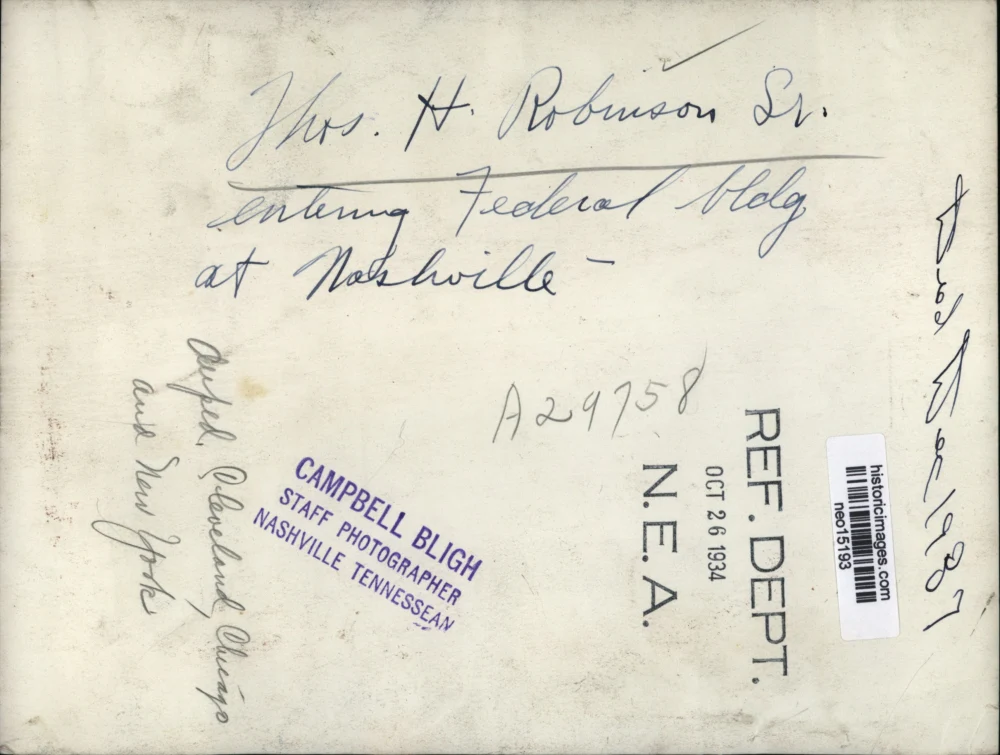 Thos. H. Robinson Sr.
entering Federal bldg
at Nashville –
A29758
REF. DEPT.
OCT 26 1934
N.E.A.
CAMPBELL BLIGH
STAFF PHOTOGRAPHER
NASHVILLE TENNESSEAN
Cleveland, Chicago
and New York
historicimages.com
neo15193
1937